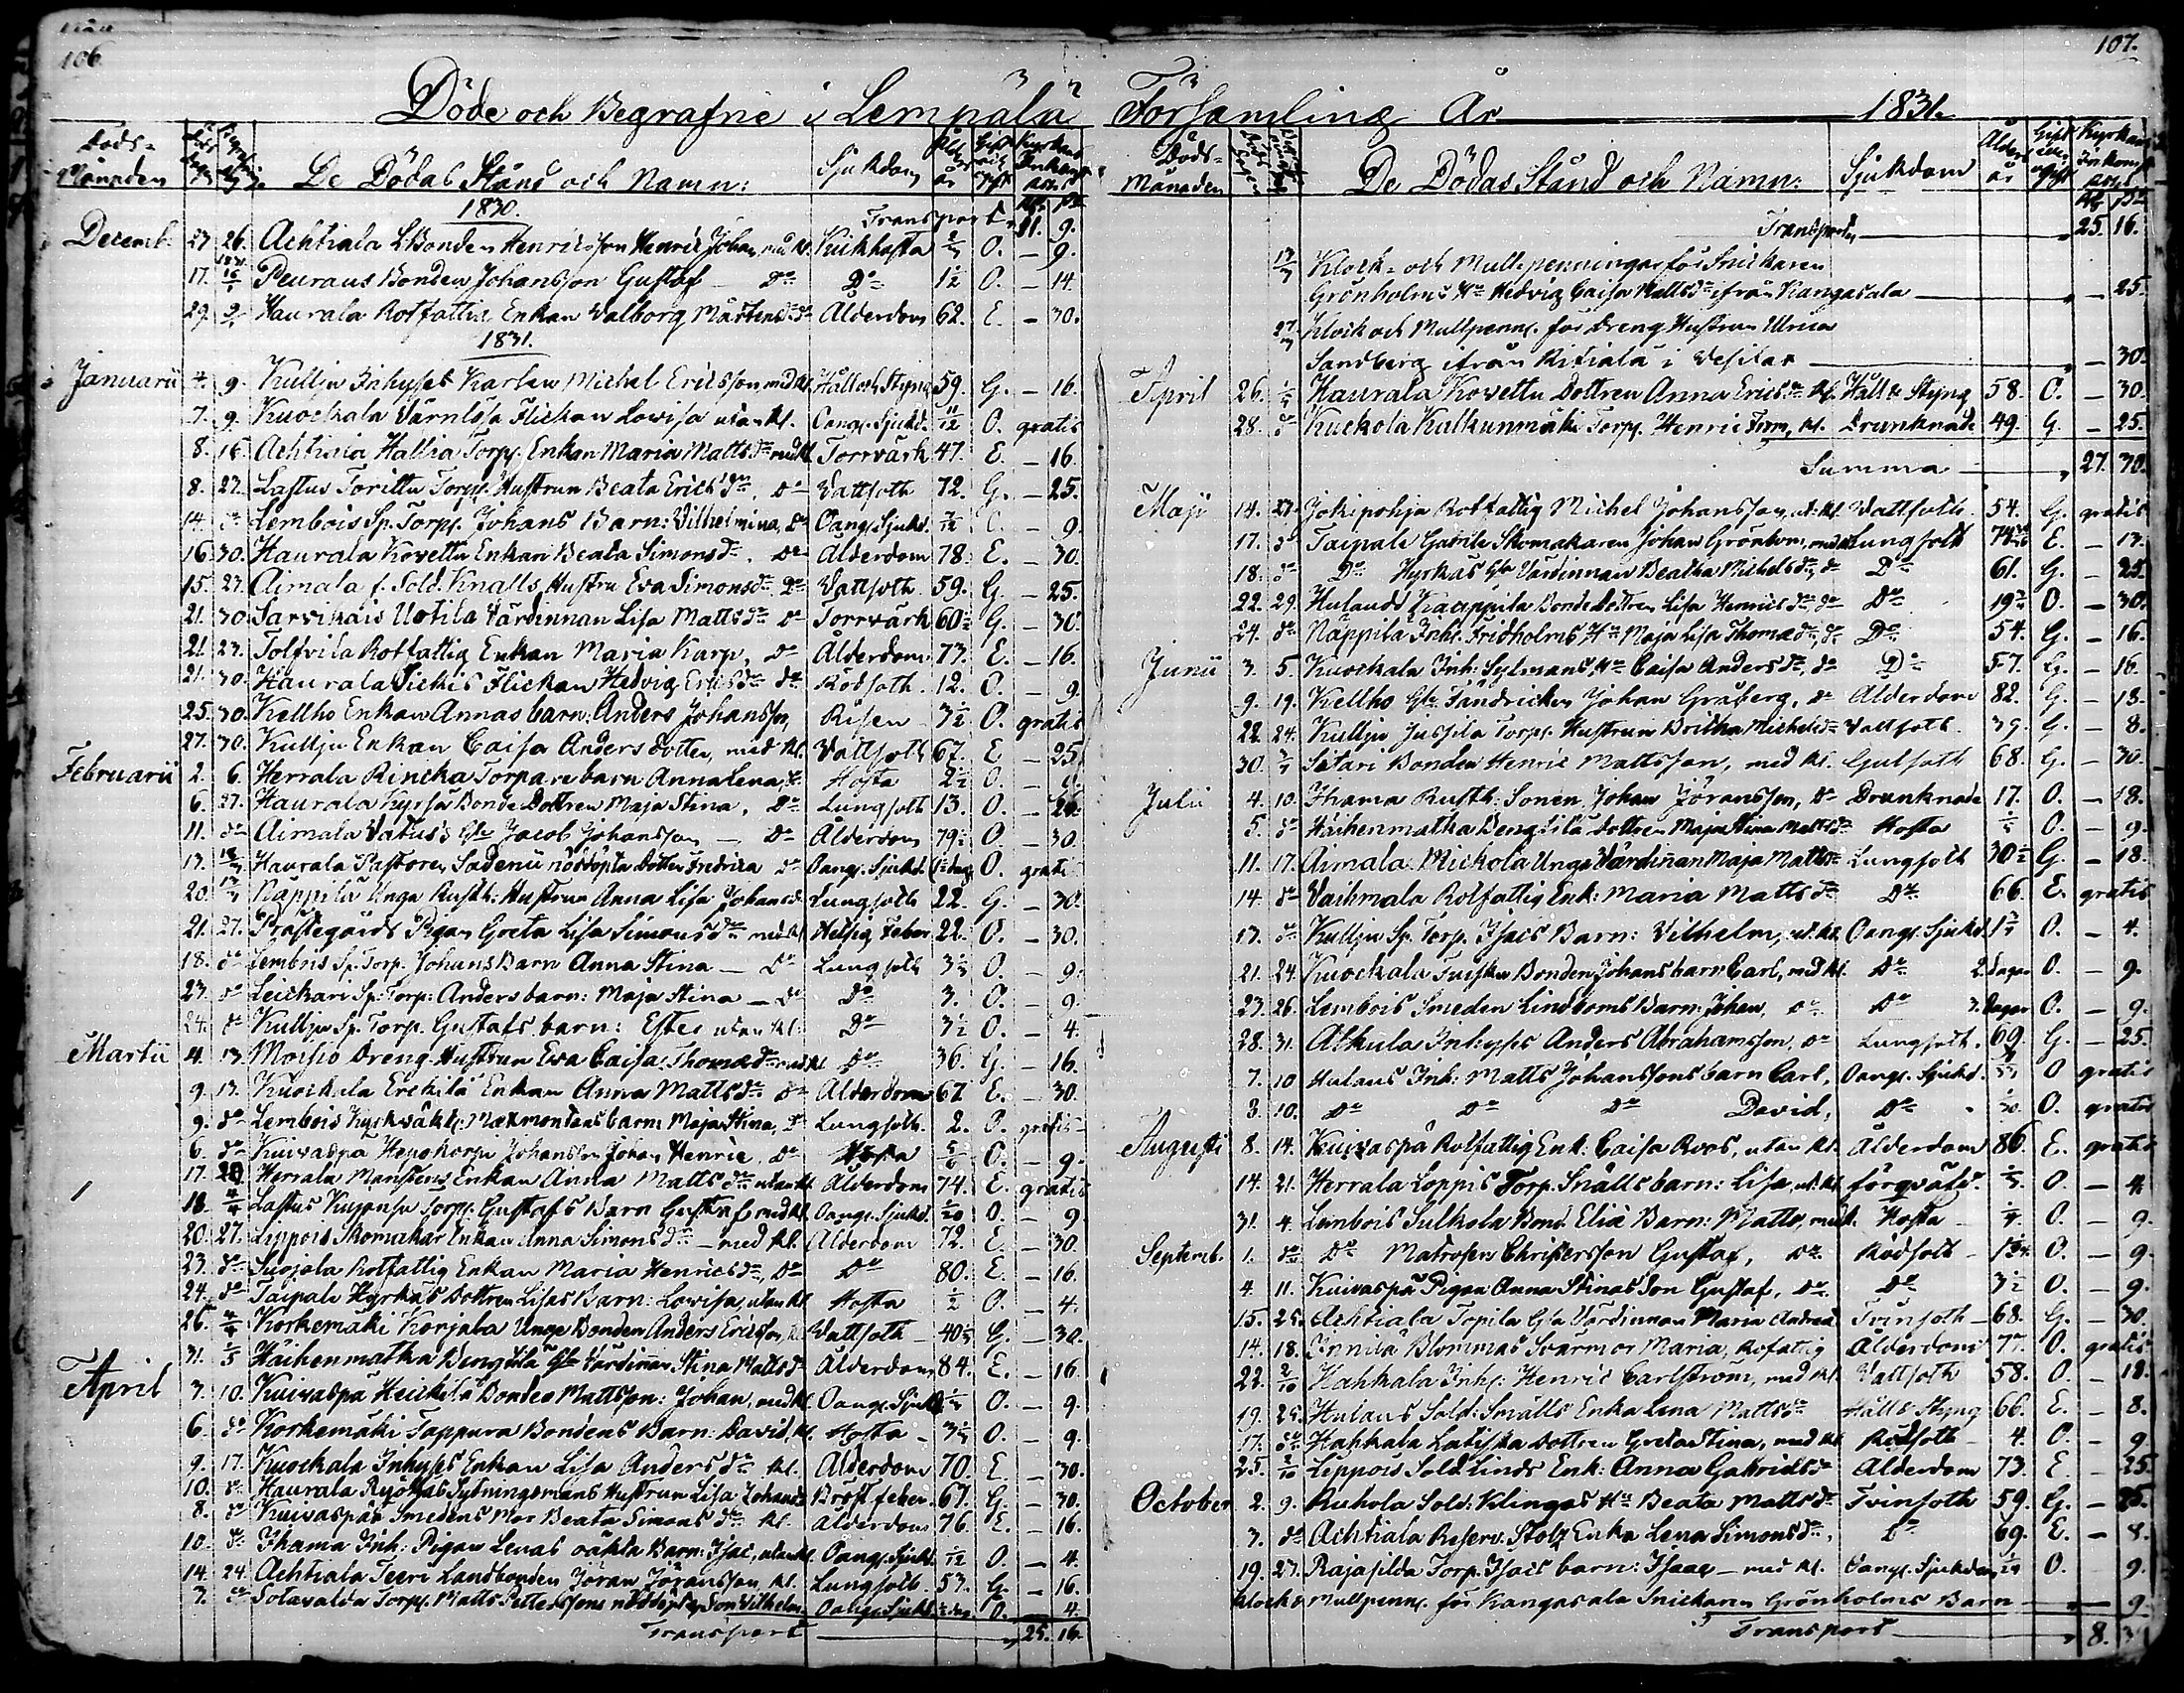 106.
Döde och Begrafne i Lempälä
Döds-Månaden De Dödas Stånd och Namn: Sjukdom
1830. Transport 11. 9.
Decemb. 27. 26. Achtiala LBonden Henricsson Henric Johan, med kl. Kikhosta O. – 9.
17. Peuraus Bonden Johansson Gustaf – Do Do 1½ O. – 14.
29. Haurala Rotfattig Enkan Valborg Mårtensdr Do Ålderdom 62. E. – 30.
1831.
Januarii 4. 9. Kullju Inhyses Karlen Michel Ericsson med kl. Håll och Styng 59. G. – 16.
7. 9. Kuockala Värnlösa Flickan Lovisa utan kl. Oang. Sjukd. 11/12 O. gratis
8. 16. Achtiala Hallia Torp. Enkan Maria Mattsdr med kl. Torrvärk 47. E. – 16.
8. 27. Lastus Torittu Torp. Hustrun Beata Ericsdr, Do Vattsoth 72. G. – 25.
14. do Lembois Sp. Torp. Johans Barn: Vilhelmina, Do Oang. Sjukd. O. – 9.
16. 30. Haurala Kovettu Enkan Beata Simonsdr. Do Ålderdom 78. E. – 30.
15. 27. Aimala f. Sold. Knalls Hustru Eva Simonsdr Do Vattsoth 59. G. – 25.
21. 30. Sarvikais Uotila Värdinnan Lisa Mattsdr Do Torrvärk 60½ G. – 30.
21. 27. Tolfvila Rotfattig Enkan Maria Karp, Do Ålderdom 73. E. – 16.
21. 30. Haurala Sickis Flickan Hedvig Ericsdr do Rödsoth. 12. O. – 9.
25. 30. Kellho Enkan Annas barn. Anders Johansson, Risen 3½ O. gratis
27. 30. Kullju Enkan Caisa Andersdotter, med kl. Vattsoth 67. E – 25.
Februarii 2. 6. Herrala Rincka Torpare barn Anna Lena, Do Hosta 2½ O. –
6. 27. Haurala Kyrsä Bonde Dottren Maja Stina, Do Lungsoth 13. O. –
11. do Aimala Vatus's Gle Jacob Johansson – Do Ålderdom 79½ O. – 30.
17. Haurala Pastoren Sadenii nöddöpta Dotter Fredrica Do Oang. Sjukd. O. gratis
20. Näppilä Unga Rusth: Hustrun Anna Lisa Johansdr Lungsoth 22. G. – 30.
21. 27. Prästegårds Pigan Greta Lisa Simonsdr med kl. Hetsig Feber 22. O. – 30.
18. do Lembois Sp. Torp. Johans Barn Anna Stina – Do Lungsoth 3½ O. – 9.
23. do Leickari Sp: Torp: Anders barn: Maja Stina – Do Do 3. O. – 9.
24. do Kullju Sp. Torp. Gustafs barn: Ester utan kl. Do 3½ O. – 4.
Martii 4. 13. Moisio Dreng Hustrun Eva Caisa Thomædr med kl. Do 36. G. – 16.
9. 13. Kuockala Erckilä Enkan Anna Mattsdr Do Ålderdom 67 E. – 30.
9. do Lembois Kyrkväkt: barn: Maja Stina, Do Lungsoth. 2. O. gratis
6. do Kuivaspä Johansson Johan Henric Do Hosta O. – 9.
17. 20. Herrala Månssens Enkan Anna Mattsdr utan kl. Ålderdom 74. E. gratis
18. Lastus Kujansu Torp. Gustafs Barn Gustaf med kl. Oang. Sjukd. O. – 9
20. 27. Lippois Skomakar Enkan Anna Simonsdr – med kl. Ålderdom 72. E. – 30.
23. do Suojala Rotfattig Enkan Maria Henricsdr, Do Do 80. E. – 16.
24. do Taipale Hyrkäs Dottren Lisas Barn: Lovisa, utan kl. Hosta ½ O. – 4.
26. Korkemäki Korjala Unge Bonden Anders Ericsson, kl. Vattsoth – G. – 30.
31. Häihenmatka Bengtilä Gle Värdinnan Stina Mattsdr Ålderdom 84. E. – 16.
April 3. 10. Kuivaspä Heickilä Bonden Mattsson: Johan, med kl. Oang. Sjukd. O. – 9.
6. do Korkemäki Tappura Bondens Barn: David, kl. Hosta – O. – 9.
9. 17. Kuockala Inhyses Enkan Lisa Andersdr kl. Ålderdom 70. E – 30.
10. do Haurala Sytningsmans Hustrun Lisa Johansdr Bröst feber. 67. G. – 30.
8. do Kuivaspä Smedens Mor Beata Simonsdr kl. Ålderdom 76. E. – 16.
10. do Ihama Inh: Pigan Lenas oäkta Barn: Isac, utan kl. Oang. Sjukd. O. – 4.
14. 24. Achtiala Teeri Landbonden Jöran Jöransson kl. Lungsoth. 53. G. – 16.
7. do Sotavalda Torp. Matts Petterssons nöddöpta Son Vilhelm Oang. Sjukd. O. 4.
Transport 25. 16.
107.
Församling År 1831.
Döds-Månaden De Dödas Stånd och Namn: Sjukdom Ålder år
Transport 25. 16.
Klock- och Mullpenningar för Snickaren
Grönholms Hu Hedvig Caisa Mattsdr ifrån Kangasala – 25.
Klock och Mullpenng. för Dreng Hustrun Ulrica
Sandberg ifrån Ritiala i Vesilax – 30.
April 26. Haurala Kovettu Dottren Anna Ericsdr kl. Håll & Styng 58. O. – 30.
28. do Kuckola Kalkunmäki Torp. Henric kl. Drunknade 49. G. – 25.
Summa 27. 30.
Maji 14. 27. Jokipohja Rotfattig Michel Johansson, ut. kl. Vattsoth. 54. G. gratis
17. do Taipale Gabriels Skomakaren Johan Grönbom, med kl. Lungsoth E. – 13.
18. do Do Hyrkäs Gle Värdinnan Beatha Michelsdr, do Do 61. G. – 25.
22. 29. Hulauds Kauppila Bonde dottren Lisa Henricsdr do Do O. – 30.
24. do Näppilä Inh. Fridholms Hu Maja Lisa Thomædr, do Do 54. G. – 16.
Junii 3. 5. Kuockala Inh: Sylmans Hu Caisa Andersdr, do Do 57. G. – 16.
9. 19. Kellho Gle Fändricken Johan Gråberg, do Ålderdom 82. G. – 18.
22. 24. Kullju Jussila Torp. Hustrun Britha Michelsdr Vattsoth. 39. G. – 8.
30. Sätari Bonden Henric Mattsson, med kl. Gulsoth 68. G. – 30.
Julii 4. 10. Ihama Rusth: Sonen Johan Jöransson, Do Drunknade 17. O. – 18.
5. do Häihenmatka Bengtilä dottren Maja Stina Mattsdr Hosta O. – 9.
11. 17. Aimala Mickola Unga Värdinnan Maja Mattsdr Lungsoth 30½ G. – 18.
14. do Vaihmala Rotfattig Enk: Maria Mattsdr Do 66. E. gratis
17. do Kullju Sp. Torp. Isacs Barn: Vilhelm, ut. kl. Oang. Sjukd. O. – 4.
21. 24. Kuockala Tuiskun Bonden Johans barn Carl, med kl. Do 2. dagar O. – 9.
23. 26. Lembois Smeden Lindboms Barn: Johan, Do Do 3. dagar O. – 9.
28. 31. Alkula Inhyses Anders Abrahamsson, Do Lungsoth. 69. G. – 25.
7. 10 Hulaus Inh: Matts Johanssons barn Carl, Oang. Sjukd. O gratis
3. 10. Do Do Do David, Do O. gratis
Augusti 8. 14. Kuivaspä Rotfattig Enk. Caisa Roos, utan kl. Ålderdom 86. E. gratis
14. 21. Herrala Loppis Torp. Snälls barn: Lisa, ut. kl. förqväfd. O. – 4.
31. 4. Lembois Sulkola Bond. Eliä Barn: Matts, med kl. Hosta – O. – 9.
Septemb. 1. do Do Matrosen Christersson Gustaf, Do Rödsoth – O. – 9.
4. 11. Kuivaspä Pigan Anna Stinas Son Gustaf, Do Do 3½ O. – 9.
15. 25. Achtiala Topila Gla Värdinnan Maria Andreæ Tvinsoth – 68. G. – 30.
14. 18. Innilä Blommas Svärmor Maria, Rotfattig Ålderdom 77. O. gratis
22. Hahkala Inh: Henric Carlström, med kl. Vattsoth 58. O. – 18.
19. 25. Hulaus Sold. Smålls Enka Lena Mattsdr Håll & Styng 66. E. – 8.
17. do Hahkala Dottren Greta Stina, med kl. Rödsoth – 4. O. – 9
25. Lippois Sold. Linds Enk: Anna Gabrielsdr Ålderdom 73. E. – 25.
October 2. 9. Ruhola Sold. Klingas Hu Beata Mattsdr Tvinsoth 59. G. – 25.
3. do Achtiala Reserv. Stolz Enka Lena Simonsdr, Do 69. E. – 8.
19. 23. Rajasilda Torp. Isacs barn: Isaac – med kl. Oang. Sjukdom O. 9.
Klock & Mullpenng. för Kangasala Snickaren Grönholms Barn – 9.
Transport 8.